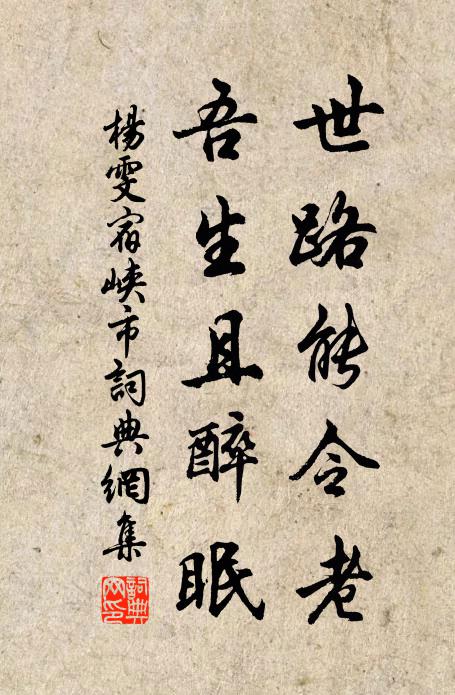 世路能令老
吾生且醉眠
楊雯宿峽市詞典網集
詞典網印